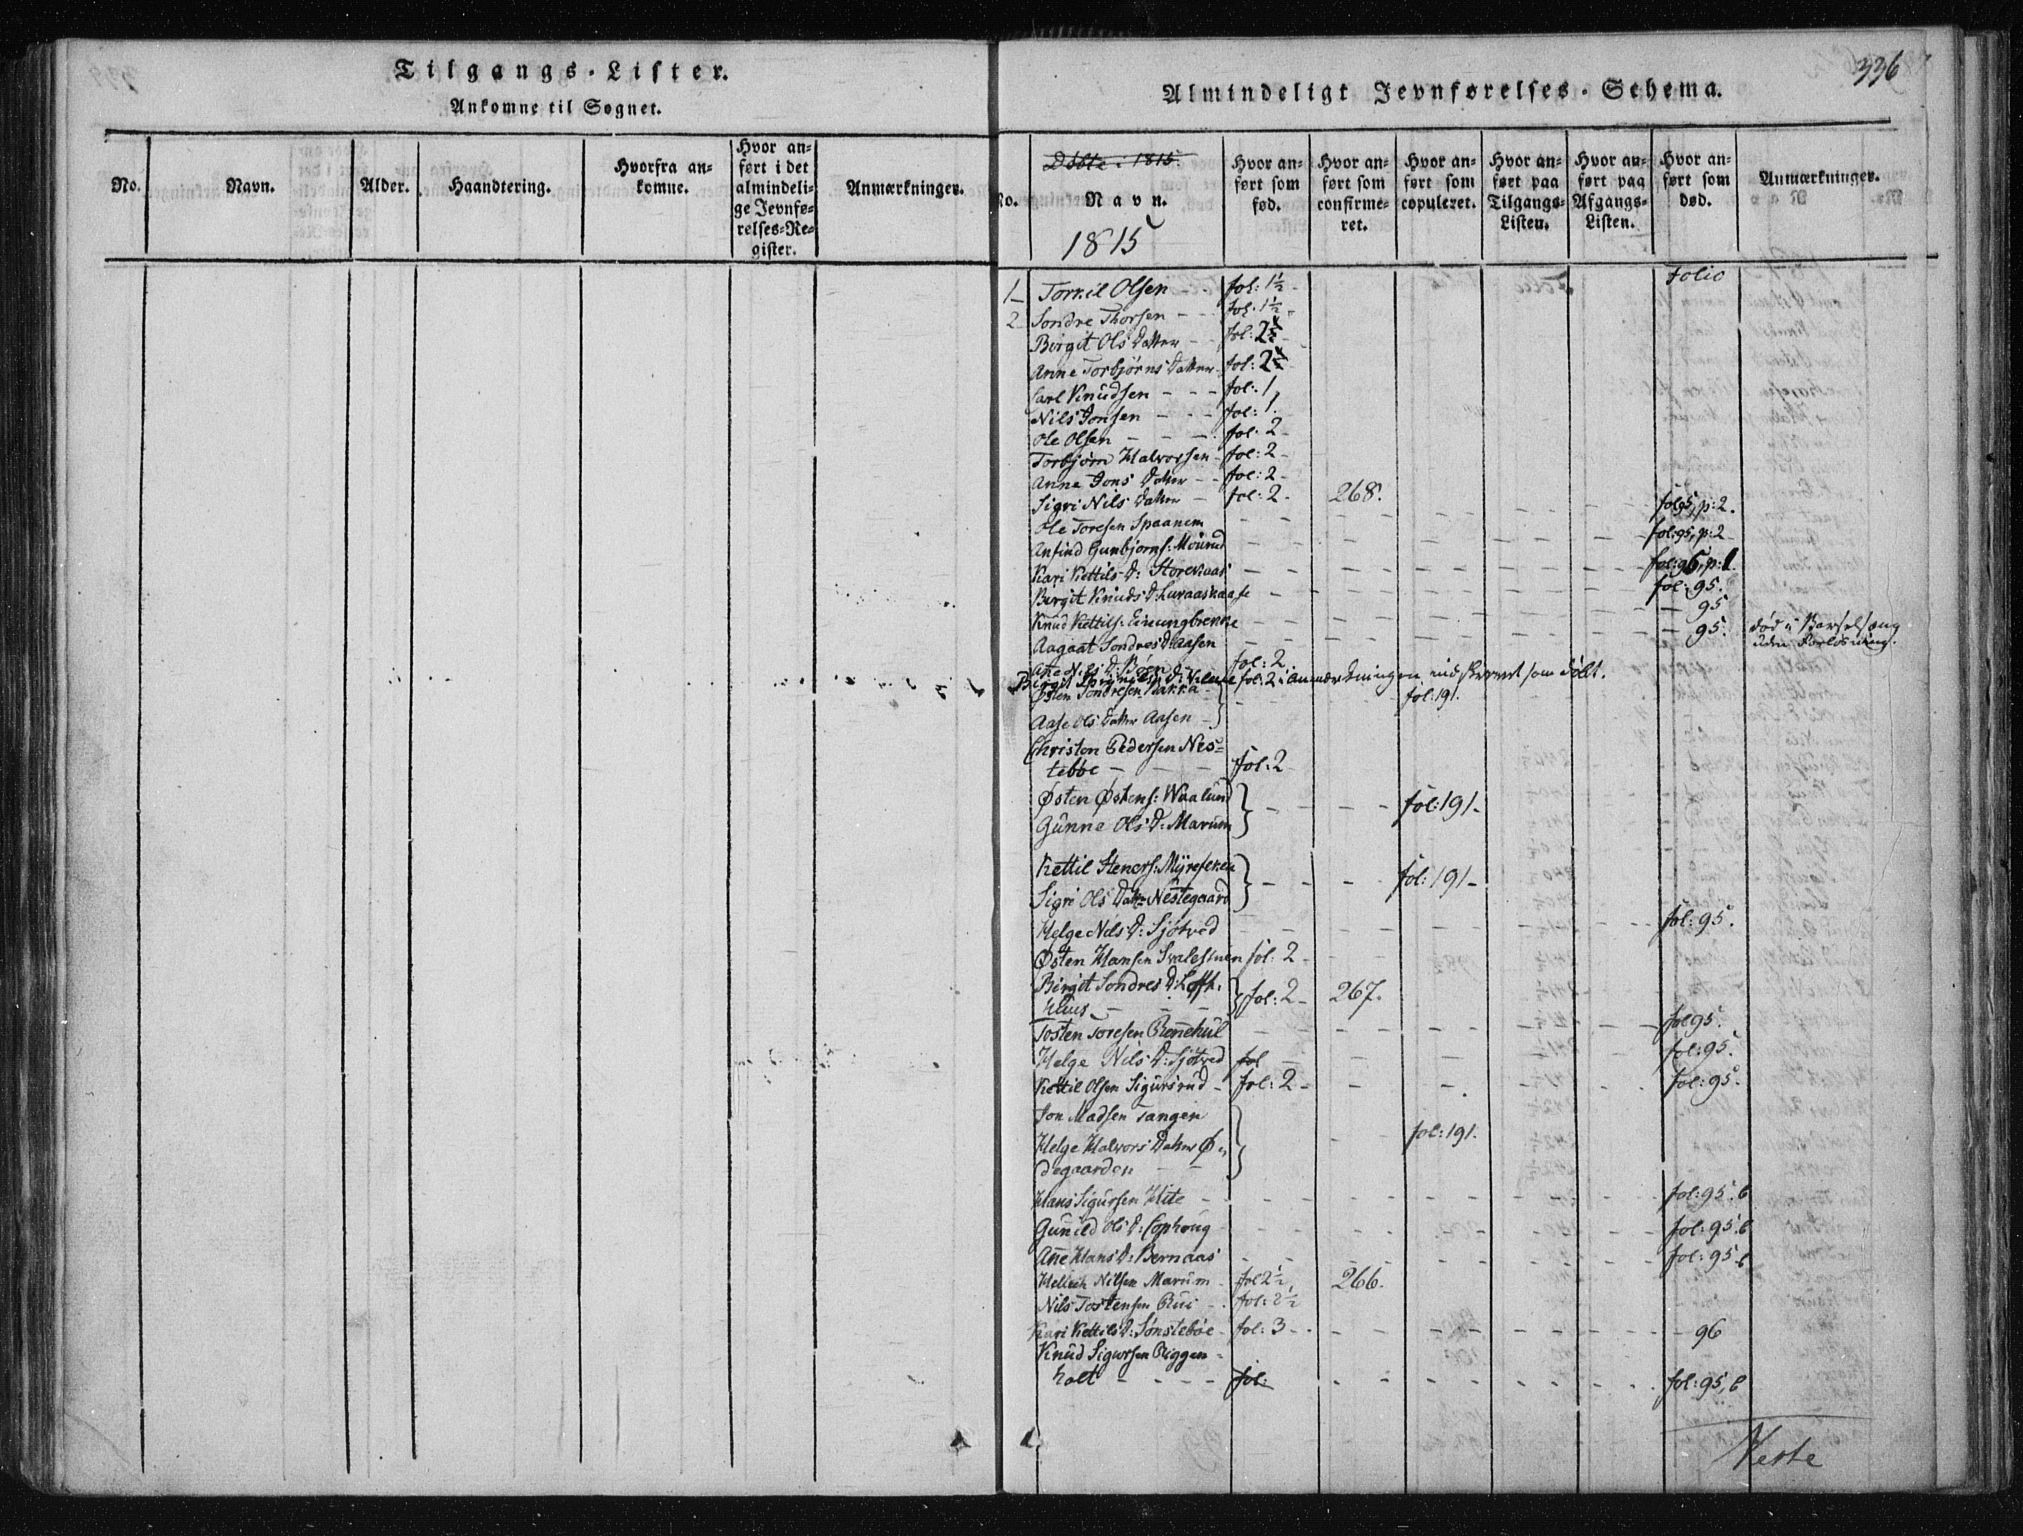 Tilgangs-Lister.
Ankomne til Sognet.
No.
Navn.
Alder.
Haandtering.
Hvorfra an-
komne.
Hvor an-
ført i det
almindeli-
ge Jevnfø-
relses-Re-
gister.
Anmærkninger.
336
Almindeligt Jevnførelses-Schema.
No.
Døbte i 1815.
Navn.
1815
Hvor an-
ført som
fød.
Hvor an-
ført som
confirme-
ret.
Hvor an-
ført som
copuleret.
Hvor an-
ført paa
Tilgangs-
Listen.
Hvor an-
ført paa
Afgangs-
Listen.
Hvor an-
ført som
død.
Anmærkninger.
Folio
1 Torkil Olsen - - fol: 1½
2 Sondre Thorsen - - fol: 1½
Birgit Ols Datter - - fol: 2
Anne Torbjørns Datter fol: 2
Carl Knudsen - - - fol: 1
Nils Jonsen - - - fol: 1.
Ole Olsen - - - fol: 2
Torbjørn Halvorsen - fol: 2
Anna Jons Datter - - fol: 2
Sigri Nils Datter - fol: 2 268.
Ole Toresen Spaanem fol 95, p: 2.
Anfind Gunbjorns: Mourud fol: 95, p: 2
Kari Kettils D: Storekaas fol: 96, p: 1.
Birgit Knuds D: Luraaskaase fol: 95.
Knud Kettils: Einungbrekke 95
Aagaat Sondres D: Aasen 95. død i Barselsæng
uden Forløsning.
Ane Nils D: Bøen fol: 2
Birgit fol: 2 i Anmærkningen indskrevet som Døbt.
Østen Sondresen Bakka fol: 191.
Aase Ols Datter Aasen
Christen Pedersen Nes-
tebøe - - - fol: 2
Østen Østens: Waalund fol: 191
Gunne Ols D: Marum
Kettil Steners: Myresken fol: 191
Sigri Ols Datter Nestegaard
Helge Nils D: Sjøtved fol: 95.
Østen Hansen Svalestuen fol: 2
Birgit Sondres D: Loft- fol: 2 267.
huus
Tosten Toresen Rennehul fol 95.
Helge Nils D: Sjøtved fol fol: 95.
Kettil Olsen Sigursrud fol: 2 fol: 95.
Jon Madsen Tangen
Helge Halvors Datter Ø- fol: 191.
degaarden
Hans Sigursen Hite fol: 95. b
Gunild Ols D: Lophoug fol: 95. b
Ane Hans D: Bernaas fol: 95 b
Hellech Nilsen Marum fol 2½ 266.
Nils Tostensen Rui fol: 2½
Kari Kettils D: Sønstebøe fol: 3 96
Knud Sigursen Riggen-
holt fol: fol: 95, b
Verte